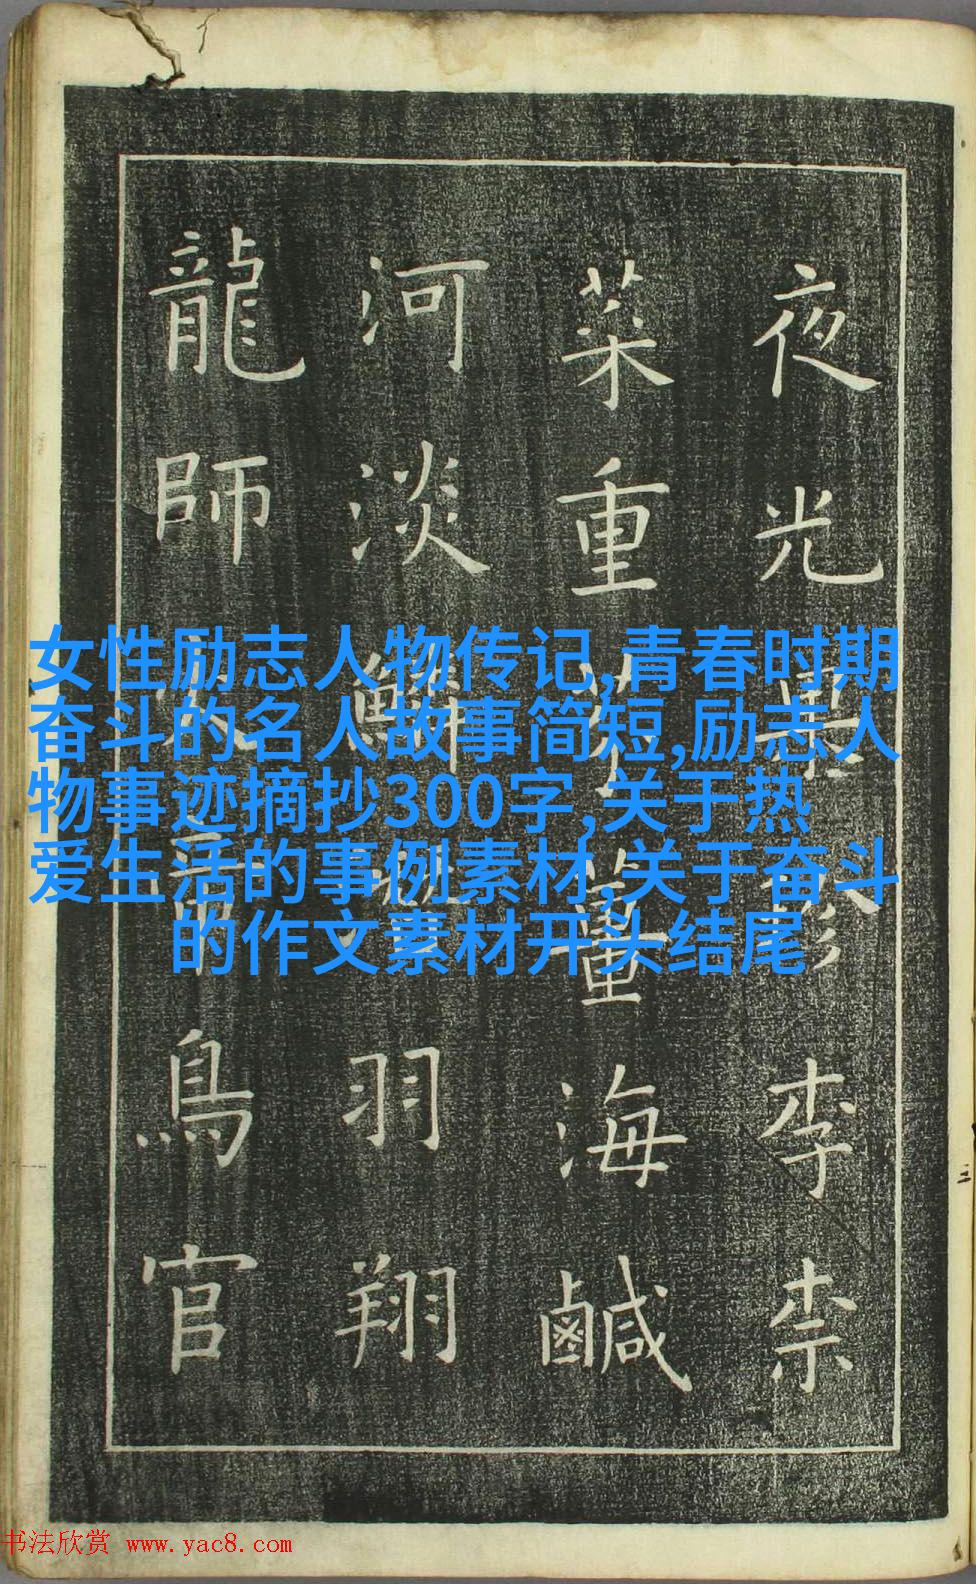 夜光果珍李柰
菜重芥薑海鹹
河淡鱗羽翔
龍師火帝鳥官
女性励志人物传记,青春时期
奋斗的名人故事简短,励志人
物事迹摘抄300字,关于热
爱生活的事例素材,关于奋斗
的作文素材开头结尾
书法欣赏 www.yac8.com